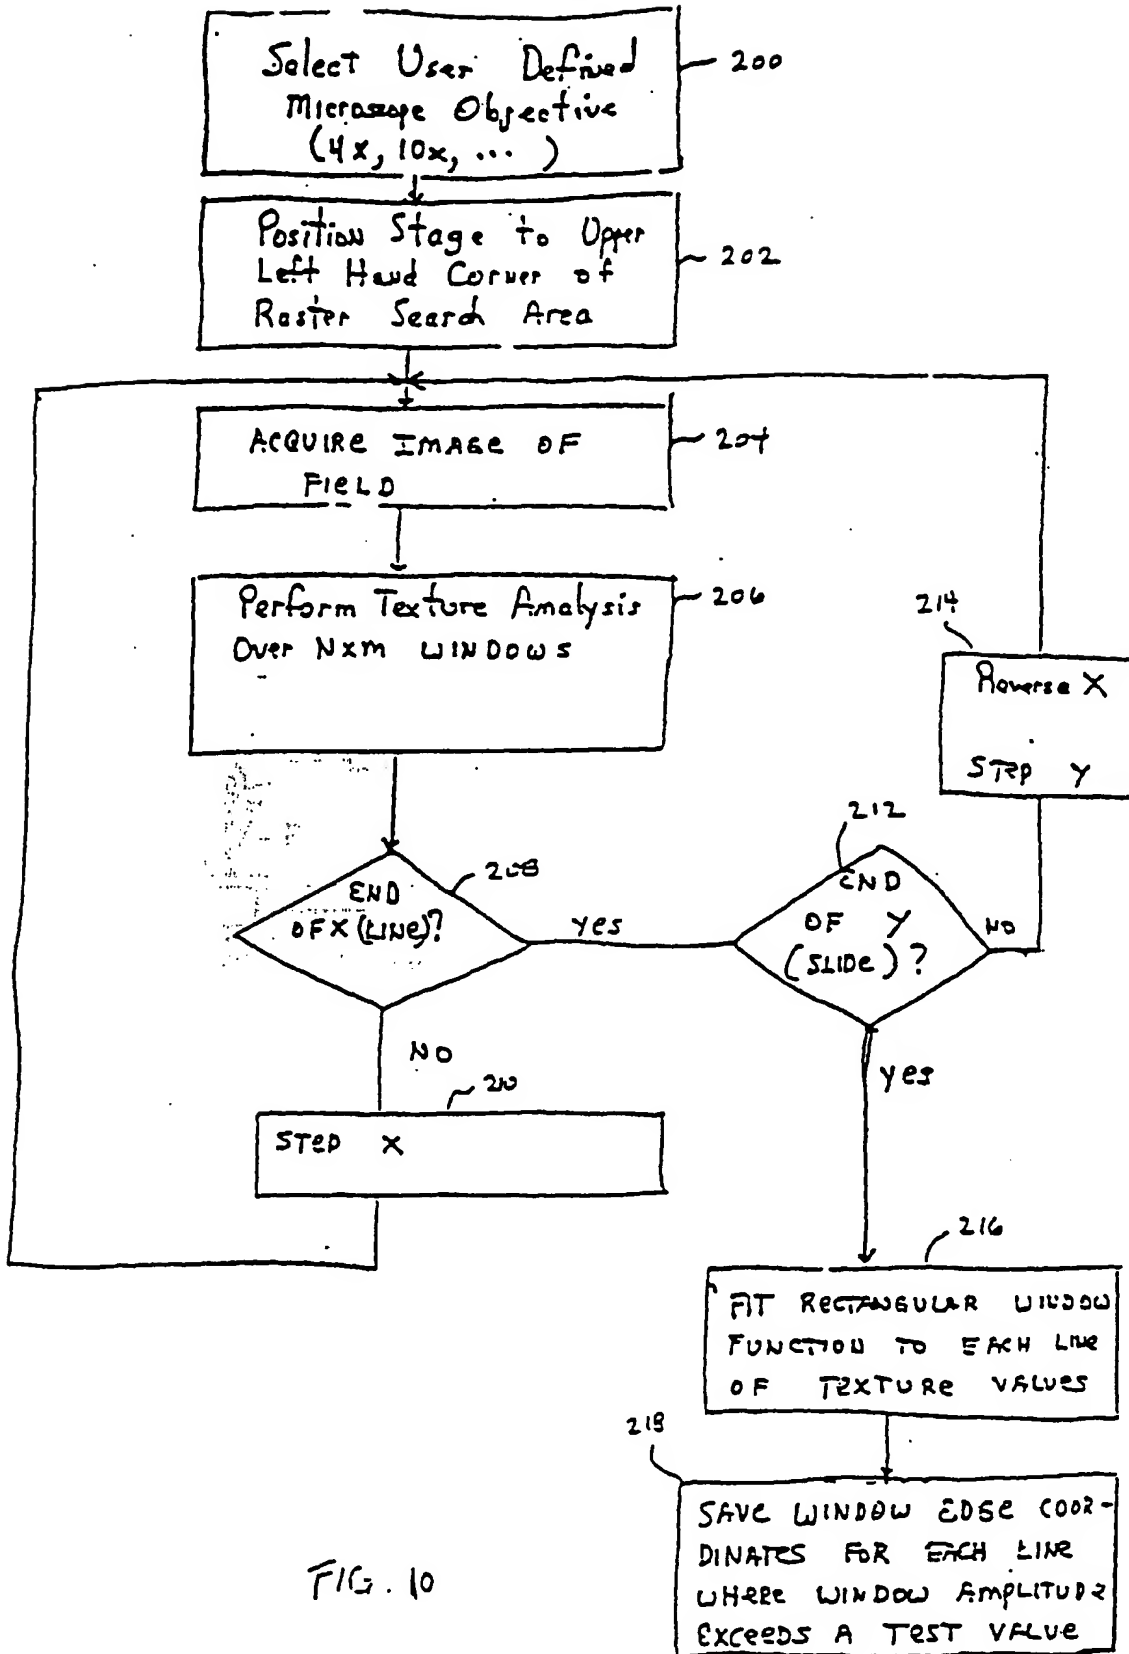 Select User Defined
Microscope Objective
(4x, 10x, ... )
200
Position Stage to Upper
Left Hand Corner of
Raster Search Area
202
ACQUIRE IMAGE OF
FIELD
204
Perform Texture Analysis
Over NXM WINDOWS
206
214
Reverse X
STEP Y
212
208
END
OF X (LINE)?
yes
END
OF Y
(SLIDE)?
NO
NO
yes
210
STEP X
216
FIT RECTANGULAR WINDOW
FUNCTION TO EACH LINE
OF TEXTURE VALUES
218
SAVE WINDOW EDGE COOR-
DINATES FOR EACH LINE
WHERE WINDOW AMPLITUDE
EXCEEDS A TEST VALUE
FIG. 10